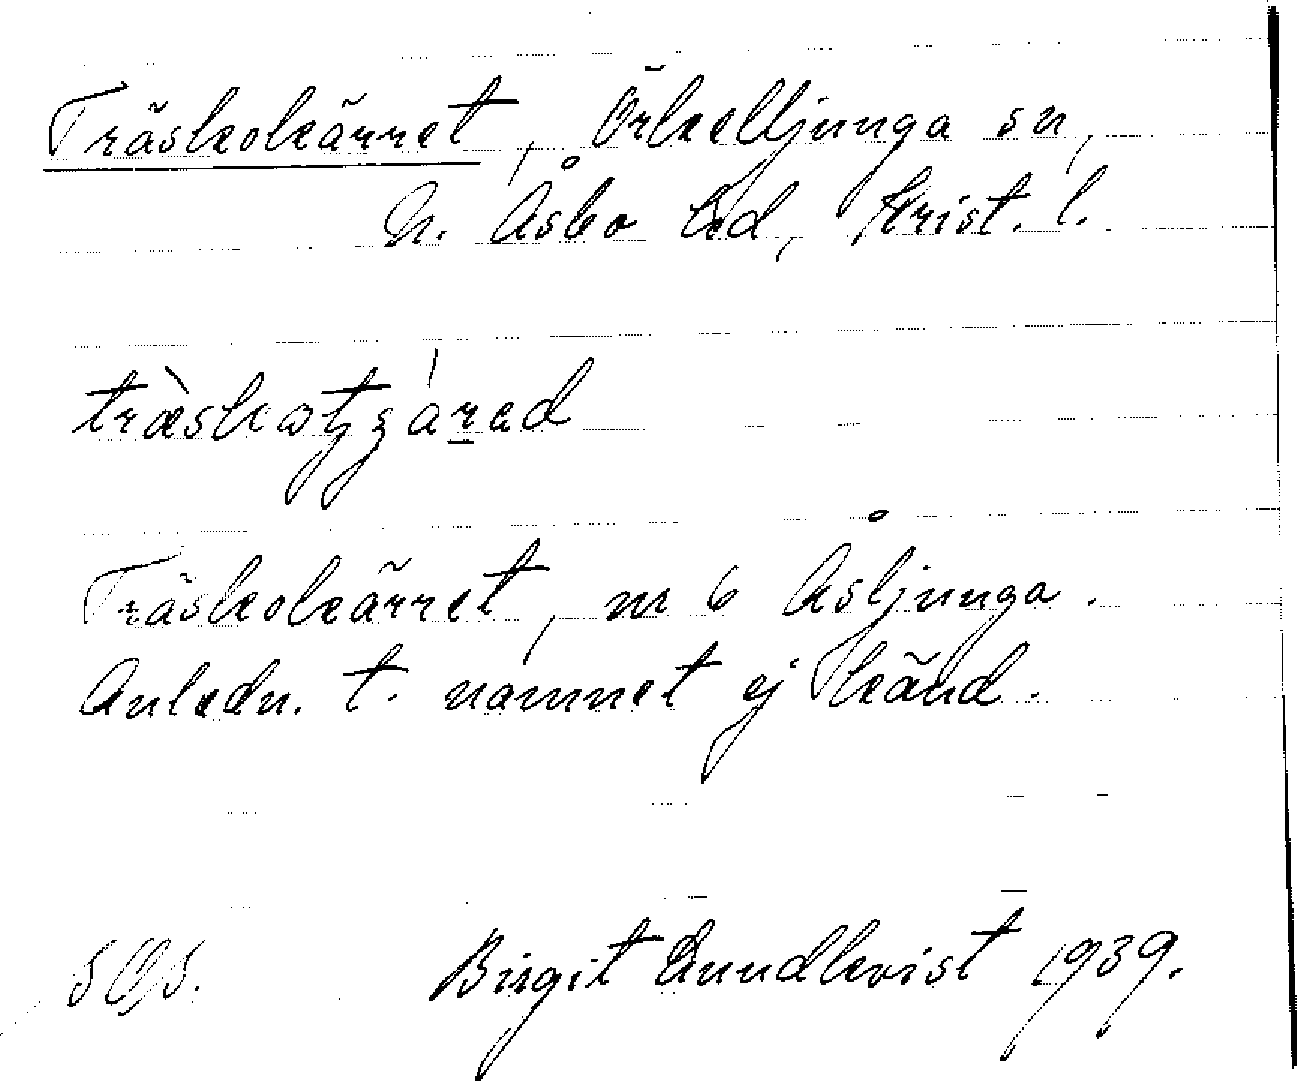 Träskokärret, Örkelljunga sn,
N. Åsbo hd, Krist. l.
Träskokärret, nr 6 Åsljunga.
Anledn. t. namnet ej känd.
Birgit Lundkvist 1939.